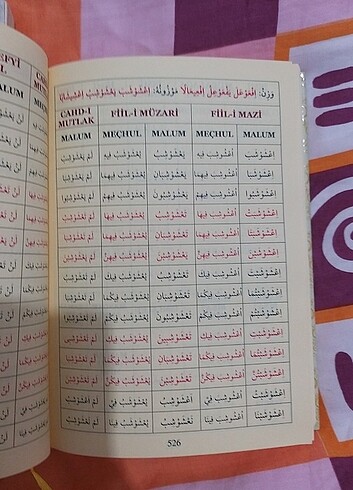 وَزْنُ: اِفْعَوْعَلَ يَفْعَوْعِلُ اِفْعِيعَالًا مَوْزُونُهُ: اِعْشَوْشَبَ يَعْشَوْشِبُ اِعْشِيشَابًا
FİİL-İ MAZİ FİİL-İ MÜZARİ CAHD-I MUTLAK
MALUM MEÇHUL MALUM MEÇHUL MALUM
اِعْشَوْشَبَ اُعْشُوشِبَ فِيهِ يَعْشَوْشِبُ يُعْشَوْشَبُ فِيهِ لَمْ يَعْشَوْشِبْ
اِعْشَوْشَبَا اُعْشُوشِبَ فِيهِمَا يَعْشَوْشِبَانِ يُعْشَوْشَبُ فِيهِمَا لَمْ يَعْشَوْشِبَا
اِعْشَوْشَبُوا اُعْشُوشِبَ فِيهِمْ يَعْشَوْشِبُونَ يُعْشَوْشَبُ فِيهِمْ لَمْ يَعْشَوْشِبُوا
اِعْشَوْشَبَتْ اُعْشُوشِبَ فِيهَا تَعْشَوْشِبُ يُعْشَوْشَبُ فِيهَا لَمْ تَعْشَوْشِبْ
اِعْشَوْشَبَتَا اُعْشُوشِبَ فِيهِمَا تَعْشَوْشِبَانِ يُعْشَوْشَبُ فِيهِمَا لَمْ تَعْشَوْشِبَا
اِعْشَوْشَبْنَ اُعْشُوشِبَ فِيهِنَّ يَعْشَوْشِبْنَ يُعْشَوْشَبُ فِيهِنَّ لَمْ يَعْشَوْشِبْنَ
اِعْشَوْشَبْتَ اُعْشُوشِبَ فِيكَ تَعْشَوْشِبُ يُعْشَوْشَبُ فِيكَ لَمْ تَعْشَوْشِبْ
اِعْشَوْشَبْتُمَا اُعْشُوشِبَ فِيكُمَا تَعْشَوْشِبَانِ يُعْشَوْشَبُ فِيكُمَا لَمْ تَعْشَوْشِبَا
اِعْشَوْشَبْتُمْ اُعْشُوشِبَ فِيكُمْ تَعْشَوْشِبُونَ يُعْشَوْشَبُ فِيكُمْ لَمْ تَعْشَوْشِبُوا
اِعْشَوْشَبْتِ اُعْشُوشِبَ فِيكِ تَعْشَوْشِبِينَ يُعْشَوْشَبُ فِيكِ لَمْ تَعْشَوْشِبِى
اِعْشَوْشَبْتُمَا اُعْشُوشِبَ فِيكُمَا تَعْشَوْشِبَانِ يُعْشَوْشَبُ فِيكُمَا لَمْ تَعْشَوْشِبَا
اِعْشَوْشَبْتُنَّ اُعْشُوشِبَ فِيكُنَّ تَعْشَوْشِبْنَ يُعْشَوْشَبُ فِيكُنَّ لَمْ تَعْشَوْشِبْنَ
اِعْشَوْشَبْتُ اُعْشُوشِبَ فِيَّ اَعْشَوْشِبُ يُعْشَوْشَبُ فِيَّ لَمْ اَعْشَوْشِبْ
اِعْشَوْشَبْنَا اُعْشُوشِبَ فِينَا نَعْشَوْشِبُ يُعْشَوْشَبُ فِينَا لَمْ نَعْشَوْشِبْ
526